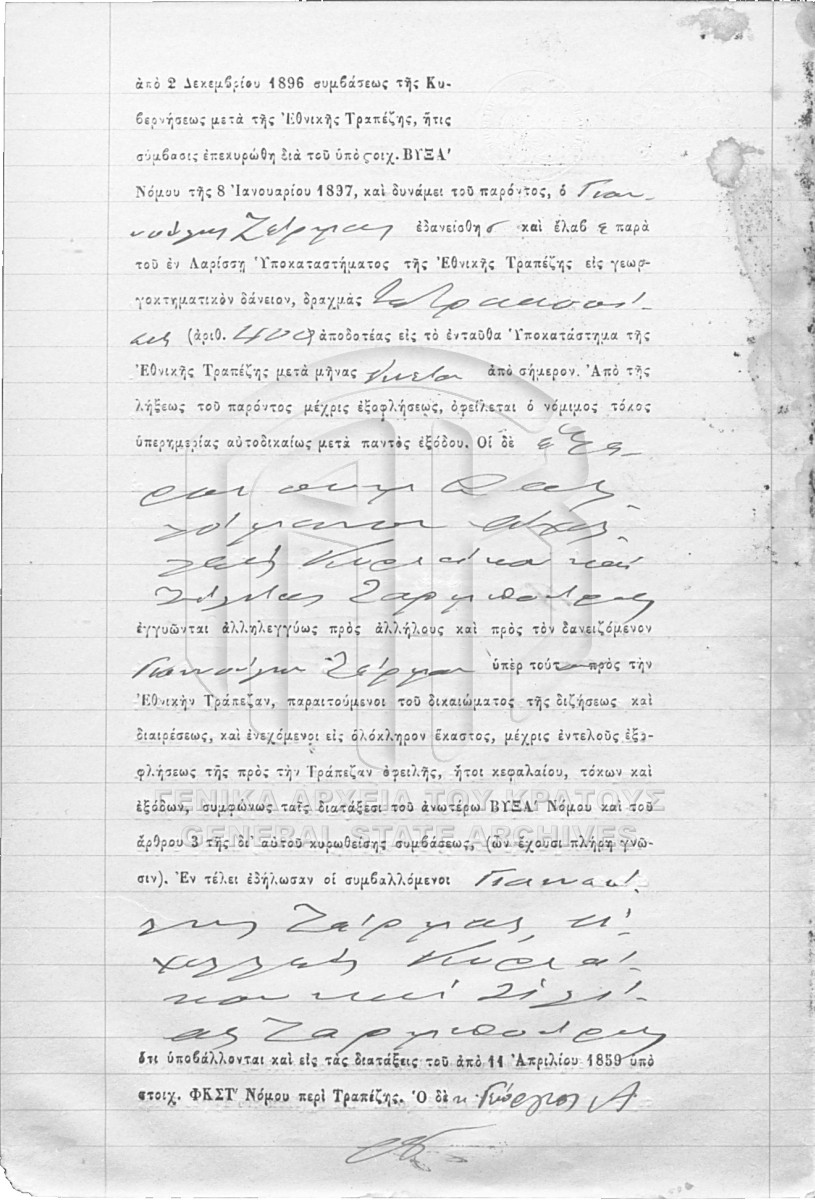 ἀπὸ 2 Δεκεμβρίου 1896 συμβάσεως τῆς Κυ-
βερνήσεως μετὰ τῆς Ἐθνικῆς Τραπέζης, ἥτις
σύμβασις ἐπεκυρώθη διὰ τοῦ ὑπὸ στοιχ. ΒΥΞΑʹ
Νόμου τῆς 8 Ἰανουαρίου 1897, καὶ δυνάμει τοῦ παρόντος, ὁ Γιαν-
νούλης Ζέρμας ἐδανείσθη καὶ ἔλαβε παρὰ
τοῦ ἐν Λαρίσσῃ Ὑποκαταστήματος τῆς Ἐθνικῆς Τραπέζης εἰς γεωρ-
γοκτηματικὸν δάνειον, δραχμὰς Τετρακοσί-
ας (ἀριθ. 400) ἀποδοτέας εἰς τὸ ἐνταῦθα Ὑποκατάστημα τῆς
Ἐθνικῆς Τραπέζης μετὰ μῆνας ἀπὸ σήμερον. Ἀπὸ τῆς
λήξεως τοῦ παρόντος μέχρις ἐξοφλήσεως, ὀφείλεται ὁ νόμιμος τόκος
ὑπερημερίας αὐτοδικαίως μετὰ παντὸς ἐξόδου. Οἱ δὲ
καὶ
ἐγγυῶνται ἀλληλεγγύως πρὸς ἀλλήλους καὶ πρὸς τὸν δανειζόμενον
Γιαννούλην Ζέρμαν ὑπὲρ τούτου πρὸς τὴν
Ἐθνικὴν Τράπεζαν, παραιτούμενοι τοῦ δικαιώματος τῆς διζήσεως καὶ
διαιρέσεως, καὶ ἐνεχόμενοι εἰς ὁλόκληρον ἕκαστος, μέχρις ἐντελοῦς ἐξο-
φλήσεως τῆς πρὸς τὴν Τράπεζαν ὀφειλῆς, ἤτοι κεφαλαίου, τόκων καὶ
ΓΕΝΙΚΑ ΑΡΧΕΙΑ ΤΟΥ ΚΡΑΤΟΥΣ
ἐξόδων, συμφώνως ταῖς διατάξεσι τοῦ ἀνωτέρω ΒΥΞΑʹ Νόμου καὶ τοῦ
GENERAL STATE ARCHIVES
ἄρθρου 3 τῆς δι' αὐτοῦ κυρωθείσης συμβάσεως, (ὧν ἔχουσι πλήρη γνῶ-
σιν). Ἐν τέλει ἐδήλωσαν οἱ συμβαλλόμενοι Γιαννού-
λης Ζέρμας,
καὶ
ὅτι ὑποβάλλονται καὶ εἰς τὰς διατάξεις τοῦ ἀπὸ 11 Ἀπριλίου 1859 ὑπὸ
στοιχ. ΦΚΣΤʹ Νόμου περὶ Τραπέζης. Ὁ δὲ κ Γεώργιος Α